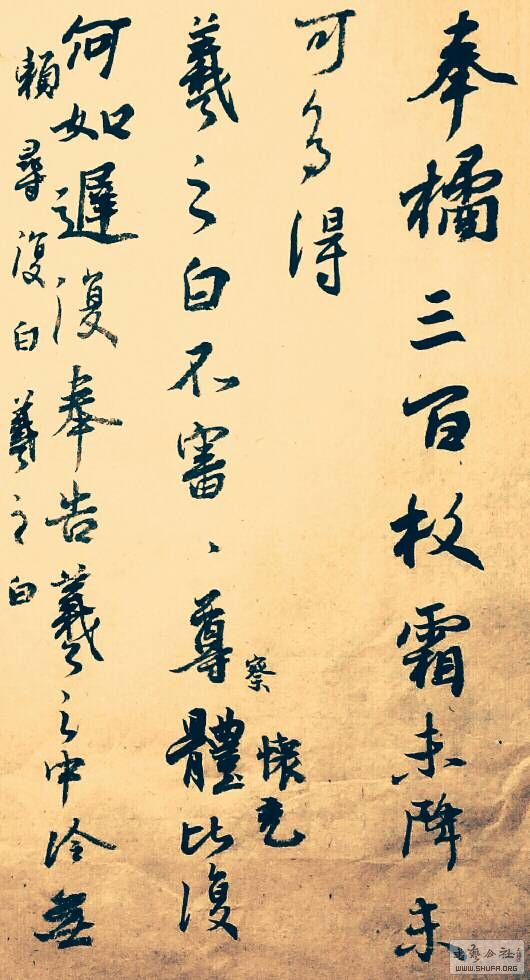 奉橘三百枚霜未降未
可多得
羲之白不審、尊體比復
察
懷充
何如遲復奉告羲之中冷無
賴尋復白羲之白
WWW.SHUFA.ORG